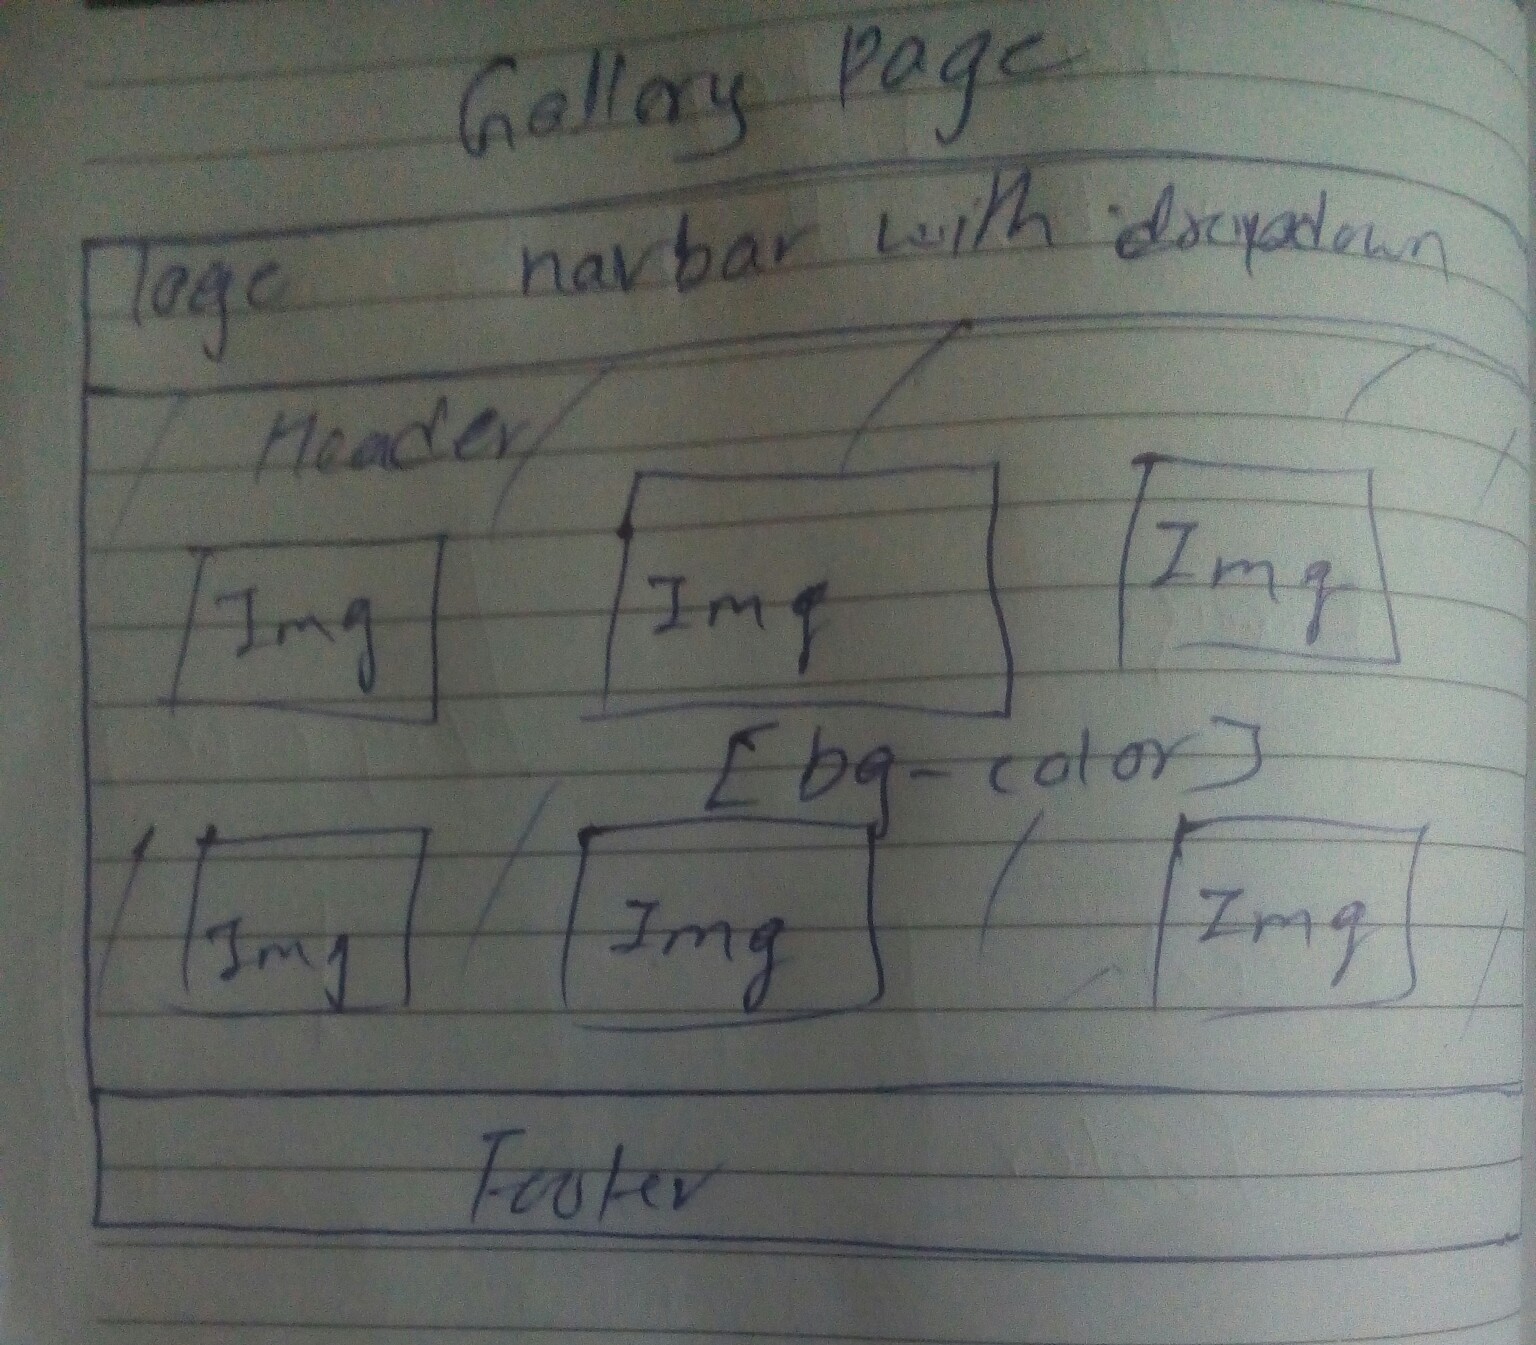 Gallery Page
loge navbar with dropdown
Header
Img Img Img
[bg-color]
Img Img Img
Footer